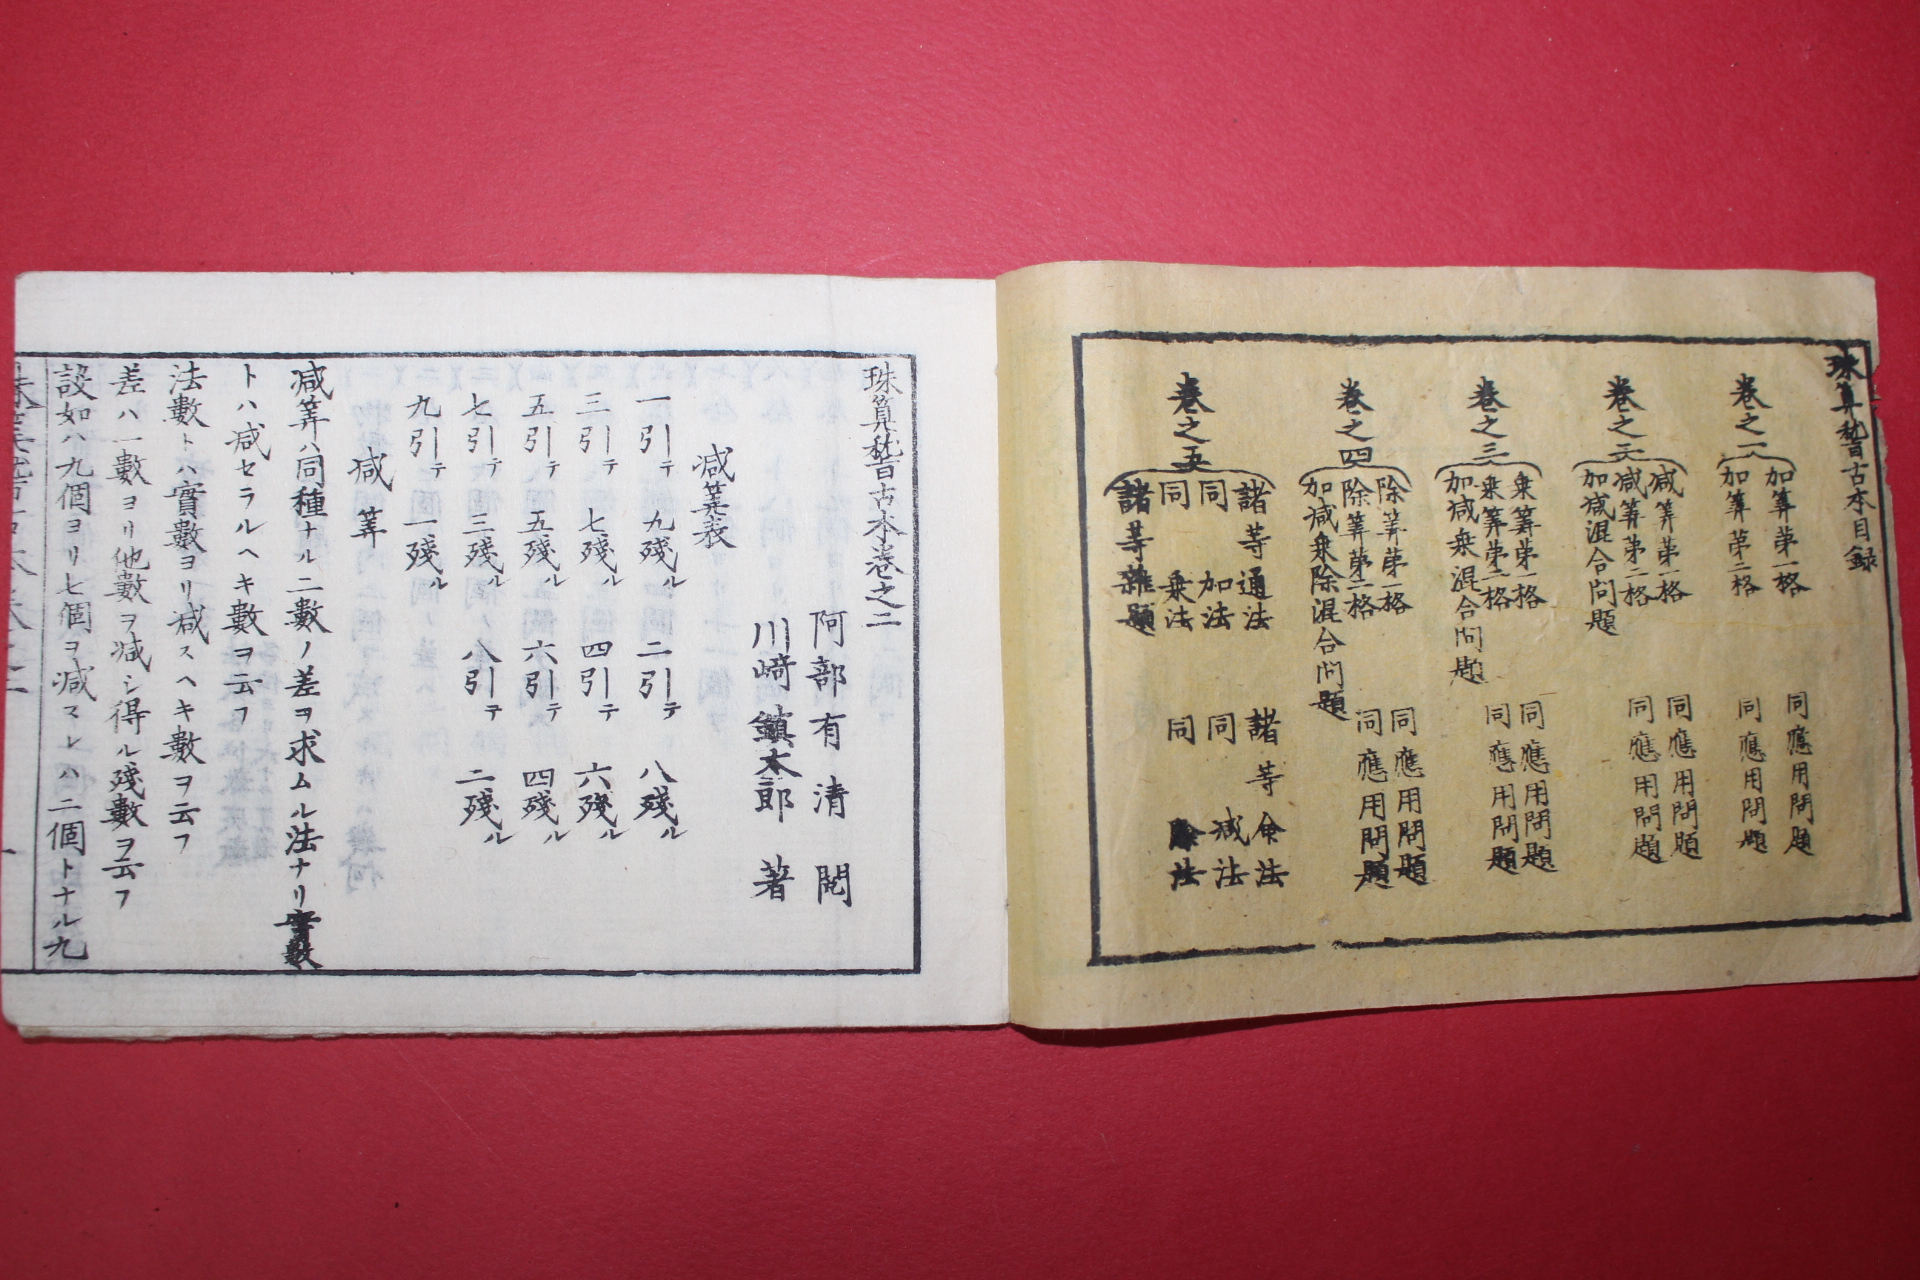 珠算稽古本目録
巻之一
加筭第一格 同應用問題
加筭第二格 同應用問題
巻之二
减筭第一格 同應用問題
减筭第二格 同應用問題
加减混合問題
巻之三
乗筭第一格 同應用問題
乗筭第二格 同應用問題
加减乗混合問題
巻之四
除筭第一格 同應用問題
除筭第二格 同應用問題
加减乗除混合問題
巻之五
諸等通法 諸等命法
同 加法 同 减法
同 乗法 同 除法
諸等雑題
珠算稽古本巻之二
阿部有清 閲
川﨑鎮太郎 著
减筭表
一引テ 九殘ル 二引テ 八殘ル
三引テ 七殘ル 四引テ 六殘ル
五引テ 五殘ル 六引テ 四殘ル
七引テ 三殘ル 八引テ 二殘ル
九引テ 一殘ル
减筭
减筭ハ同種ナル二數ノ差ヲ求ムル法ナリ實數
トハ减セラルヘキ數ヲ云フ
法數トハ實數ヨリ减スヘキ數ヲ云フ
差ハ一數ヨリ他數ヲ减シ得ル殘數ヲ云フ
設如ハ九個ヨリ七個ヲ减スレハ二個トナル九